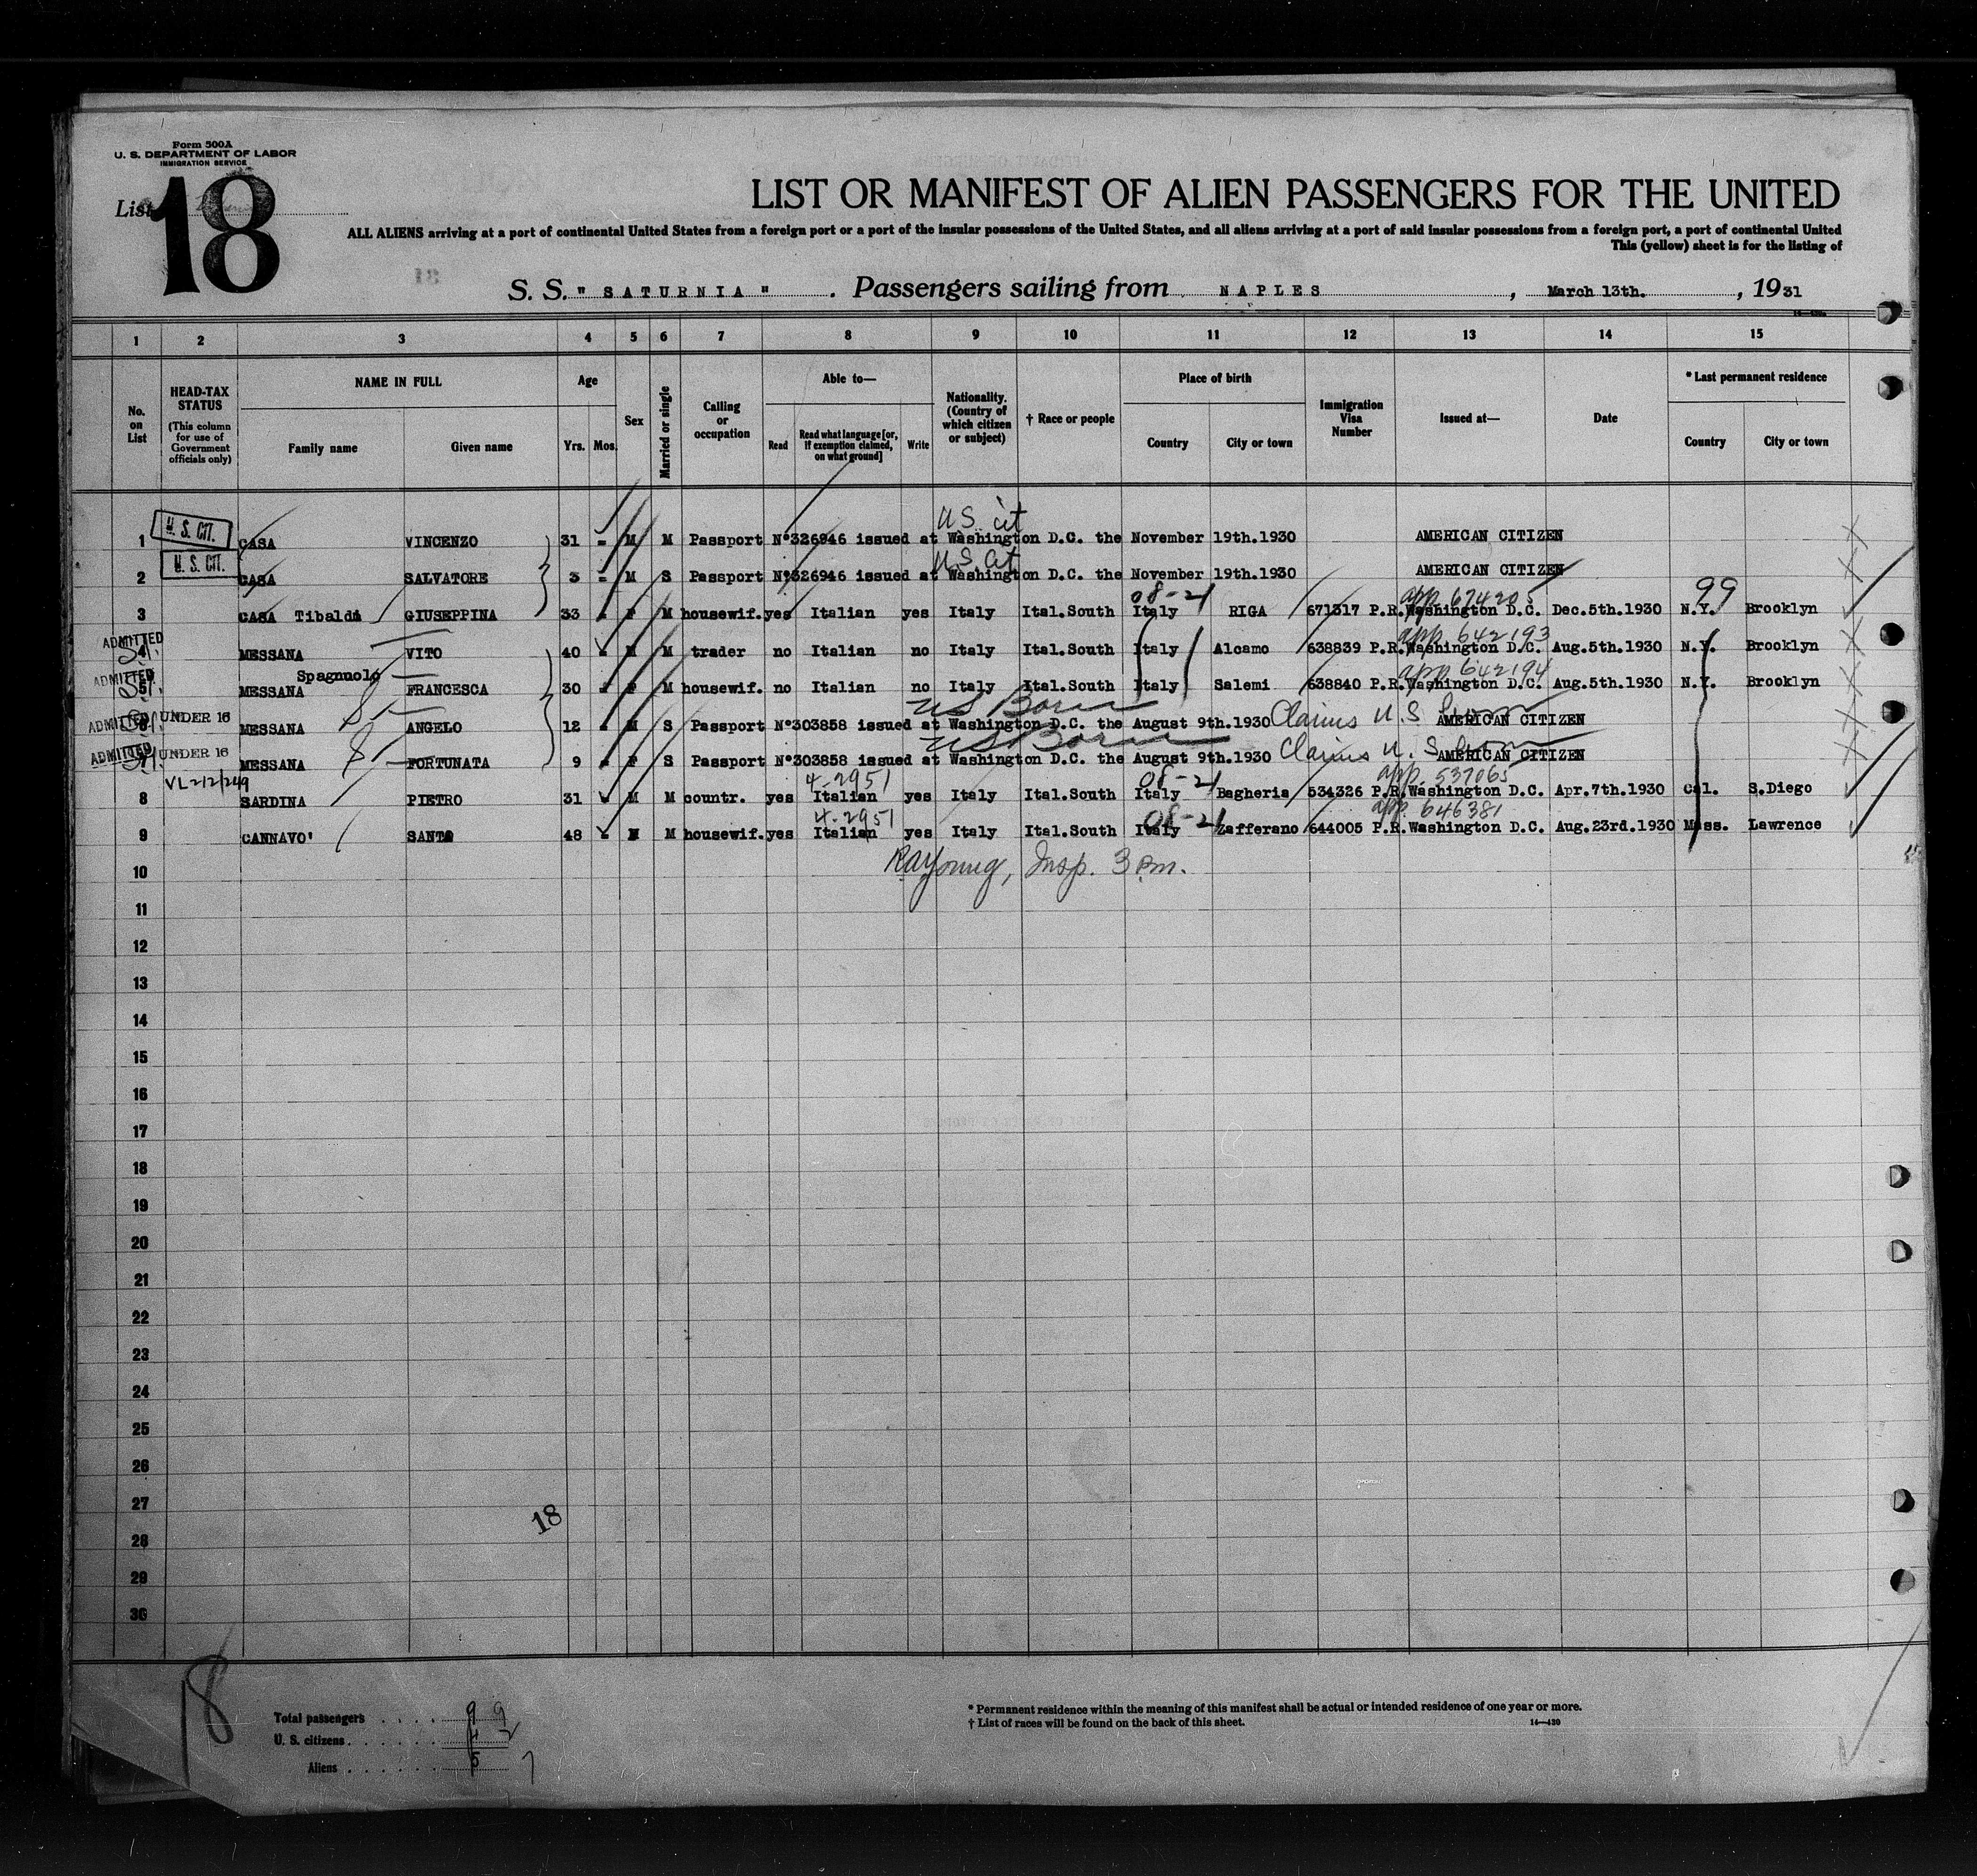 Form 500A
U. S. DEPARTMENT OF LABOR
IMMIGRATION SERVICE
List 18
LIST OR MANIFEST OF ALIEN PASSENGERS FOR THE UNITED
ALL ALIENS arriving at a port of continental United States from a foreign port or a port of the insular possessions of the United States, and all aliens arriving at a port of said insular possessions from a foreign port, a port of continental United
This (yellow) sheet is for the listing of
S. S. " SATURNIA " . Passengers sailing from NAPLES , March 13th. , 19 31
1 2 3 4 5 6 7 8 9 10 11 12 13 14 15
No. on List
HEAD-TAX STATUS (This column for use of Government officials only)
NAME IN FULL
Family name Given name
Age
Yrs. Mos.
Sex
Married or single
Calling or occupation
Able to—
Read Read what language [or, if exemption claimed, on what ground] Write
Nationality. (Country of which citizen or subject)
† Race or people
Place of birth
Country City or town
Immigration Visa Number
Issued at—
Date
* Last permanent residence
Country City or town
U.S. cit
1 U. S. CIT. CASA VINCENZO 31 - M M Passport Nº326946 issued at Washington D.C. the November 19th.1930 AMERICAN CITIZEN
U.S. Cit
2 U. S. CIT. CASA SALVATORE 3 - M S Passport Nº326946 issued at Washington D.C. the November 19th.1930 AMERICAN CITIZEN
08-21 app. 674205 99
3 CASA Tibaldi GIUSEPPINA 33 - F M housewif. yes Italian yes Italy Ital.South Italy RIGA 671317 P.R. Washington D.C. Dec.5th.1930 N.Y. Brooklyn
ADMITTED app. 642193
4 MESSANA VITO 40 - M M trader no Italian no Italy Ital.South Italy Alcamo 638839 P.R. Washington D.C. Aug.5th.1930 N.Y. Brooklyn
ADMITTED Spagnuolo app 642194
5 MESSANA FRANCESCA 30 - F M housewif. no Italian no Italy Ital.South Italy Salemi 638840 P.R. Washington D.C. Aug.5th.1930 N.Y. Brooklyn
US Born
ADMITTED UNDER 16 MESSANA ANGELO 12 - M S Passport Nº303858 issued at Washington D.C. the August 9th.1930 Claims U.S born AMERICAN CITIZEN
US Born
ADMITTED UNDER 16 MESSANA FORTUNATA 9 - F S Passport Nº303858 issued at Washington D.C. the August 9th.1930 Claims U.S born AMERICAN CITIZEN
VL 212/249 4-2951 08-21 app. 537065
8 SARDINA PIETRO 31 - M M countr. yes Italian yes Italy Ital.South Italy Bagheria 534326 P.R. Washington D.C. Apr.7th.1930 Cal. S.Diego
4-2951 08-21 app. 646381
9 CANNAVO' SANTO 48 - M M housewif. yes Italian yes Italy Ital.South Italy Zafferano 644005 P.R. Washington D.C. Aug.23rd.1930 Mass. Lawrence
10 RAYoung, Insp. 3 P.m.
11
12
13
14
15
16
17
18
19
20
21
22
23
24
25
26
27
18
28
29
30
18
Total passengers . . . . 9 9
U. S. citizens . . . . . . 4 2
Aliens . . . . . . 5 7
* Permanent residence within the meaning of this manifest shall be actual or intended residence of one year or more.
† List of races will be found on the back of this sheet. 14—420